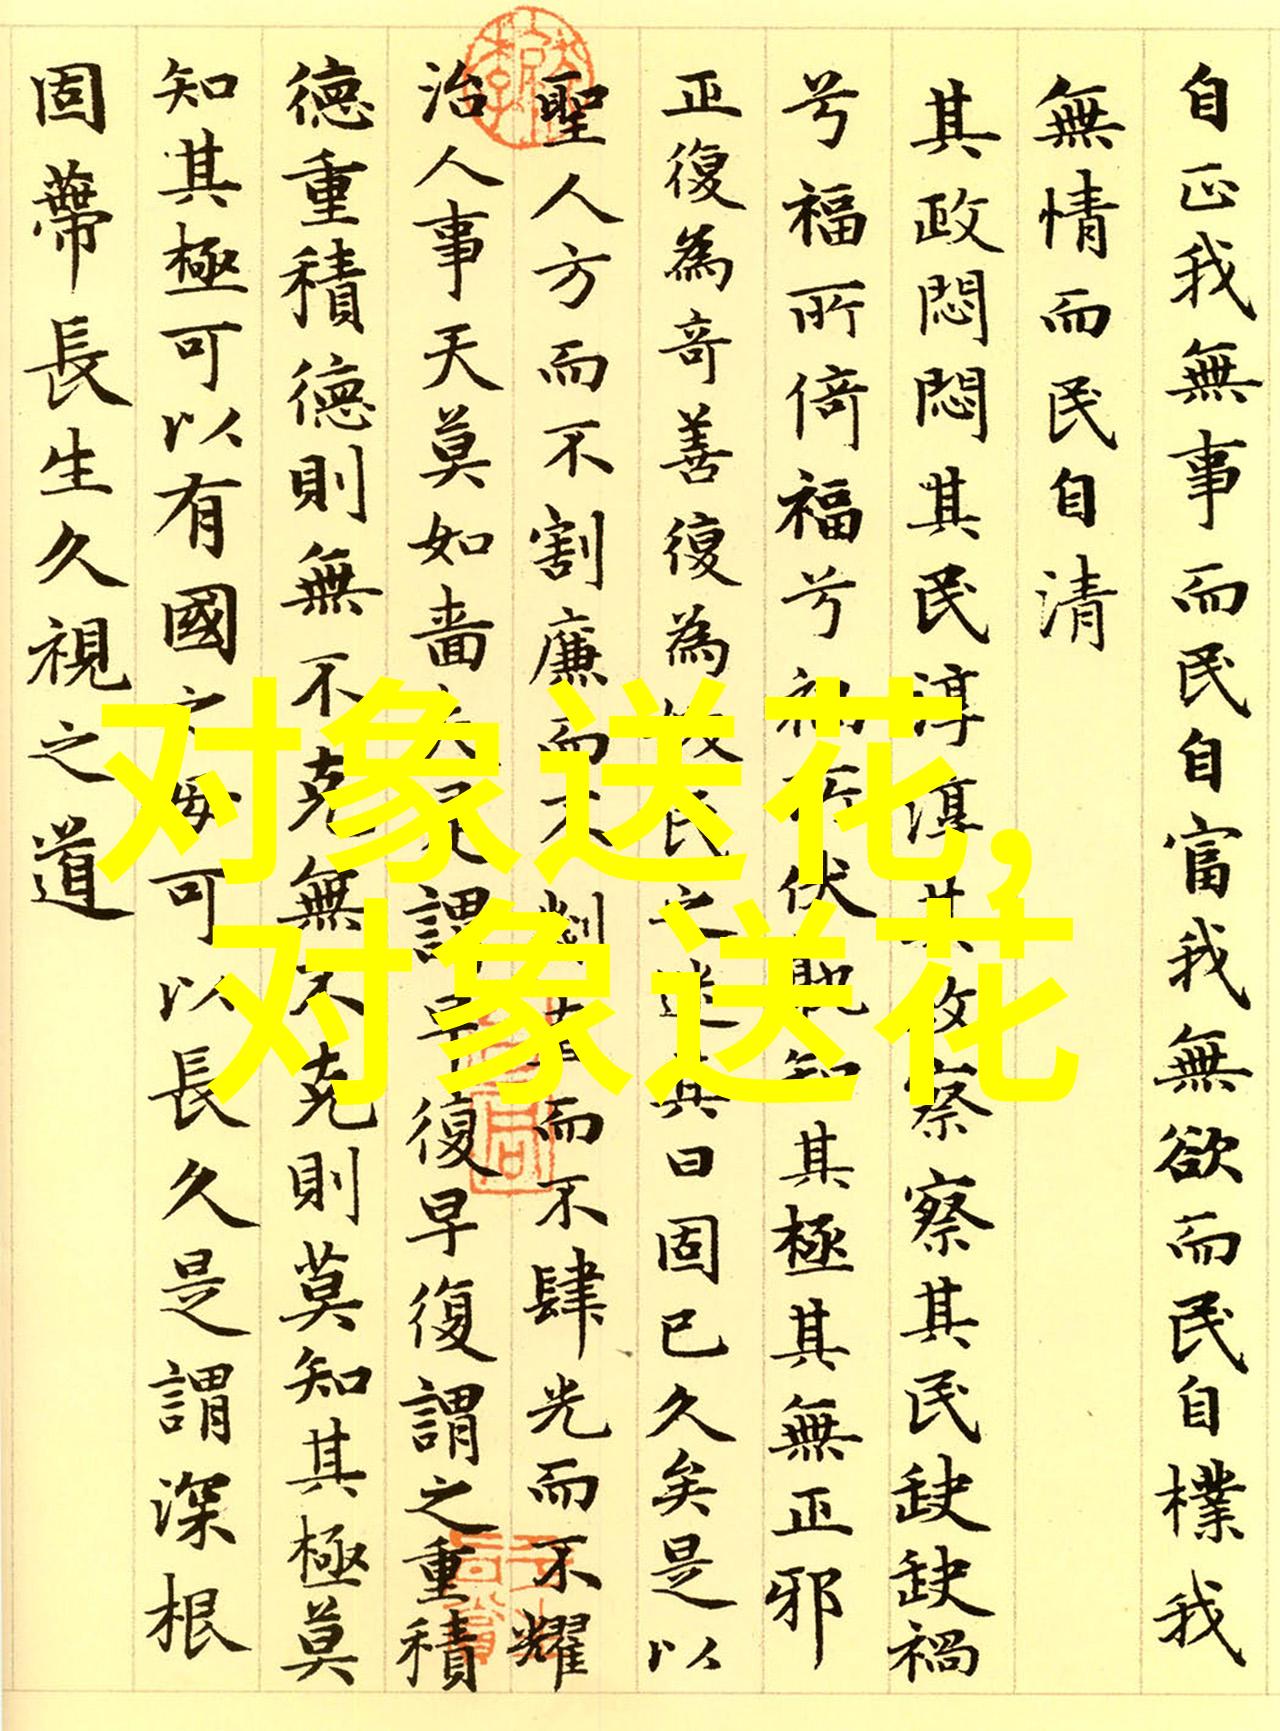 自正我無事而民自富我無欲而民自樸我
無情而民自清
其政悶悶其民淳淳其政察察其民缺缺禍
兮福所倚福兮禍所伏孰知其極其無正邪
正復為奇善復為民之迷其日固已久矣是以
聖人方而不割廉而不劌而不肆光而不耀
治人事天莫如嗇夫是謂早復早復謂之重積
德重積德則無不克無不克則莫知其極莫
知其極可以有國之母可以長久是謂深根
固蔕長生久視之道
对象送花,
对象送花